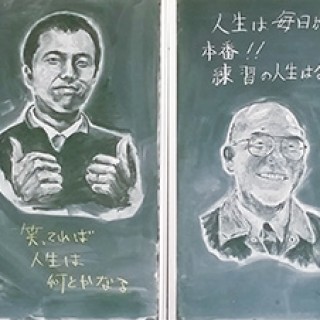 笑ってれば
人生は
何とかなる
人生は毎日が
本番!!
練習の人生は